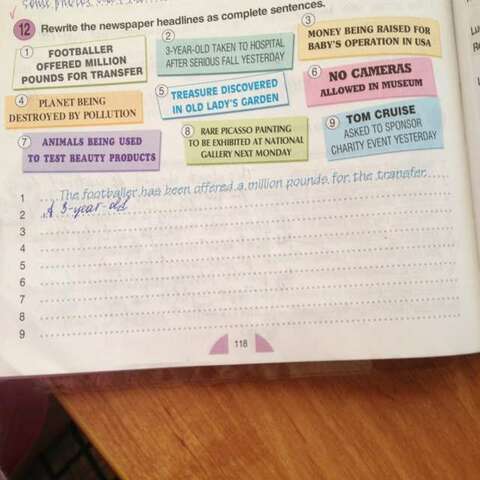 some photos
12 Rewrite the newspaper headlines as complete sentences.
1 FOOTBALLER
OFFERED MILLION
POUNDS FOR TRANSFER
2
3-YEAR-OLD TAKEN TO HOSPITAL
AFTER SERIOUS FALL YESTERDAY
3
MONEY BEING RAISED FOR
BABY'S OPERATION IN USA
4 PLANET BEING
DESTROYED BY POLLUTION
5 TREASURE DISCOVERED
IN OLD LADY'S GARDEN
6 NO CAMERAS
ALLOWED IN MUSEUM
7 ANIMALS BEING USED
TO TEST BEAUTY PRODUCTS
8 RARE PICASSO PAINTING
TO BE EXHIBITED AT NATIONAL
GALLERY NEXT MONDAY
9 TOM CRUISE
ASKED TO SPONSOR
CHARITY EVENT YESTERDAY
1 The footballer has been offered a million pounds for the transfer
2 A 3-year-old
3
4
5
6
7
8
9
118